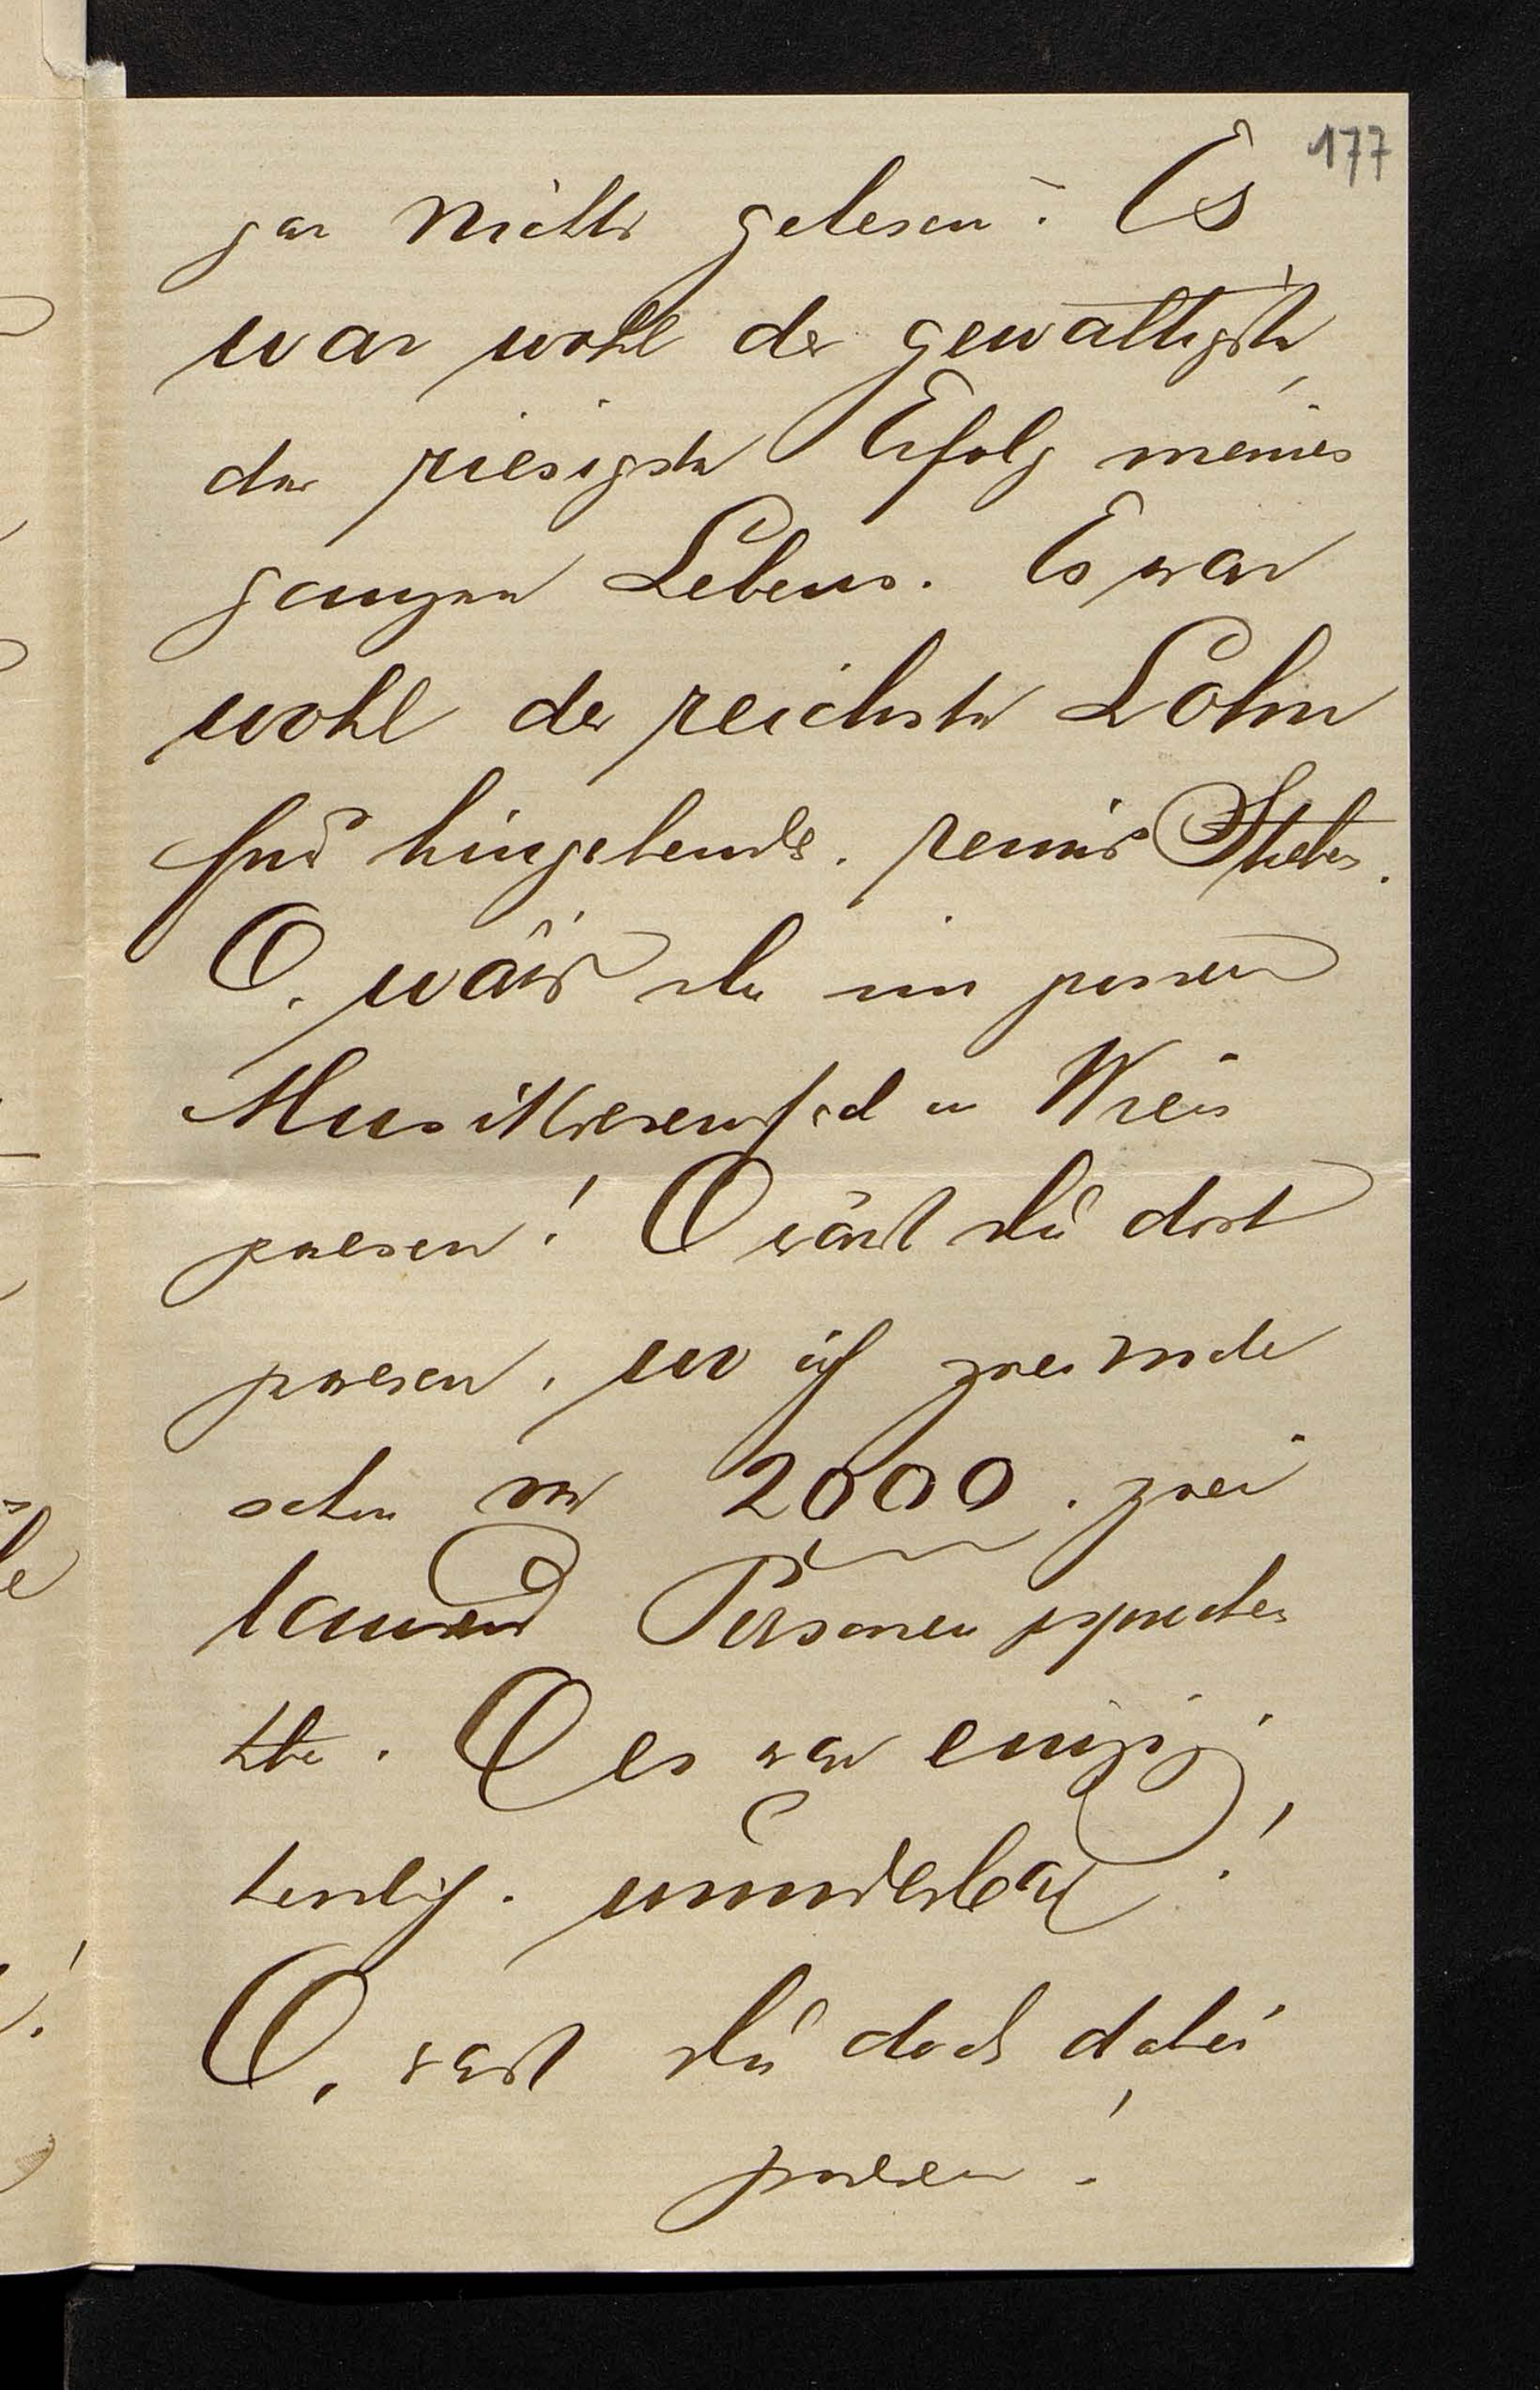 177
gar nichts gelesen? Es
war wohl der gewaltigste,
der riesigste Erfolg meines
ganzen Lebens. Es war
wohl der reichste Lohn
für hingebendes, reines Streben.
O, wärst du im grossen
Musikvereinssaal in Wien
gewesen! O wärst du dort
gewesen, wo ich zweimal
schon vor 2000, zwei
tausend Personen gesprochen
habe. O es war einzig,
herrlich, wunderbar!
O, wärst du doch dabei
gewesen!